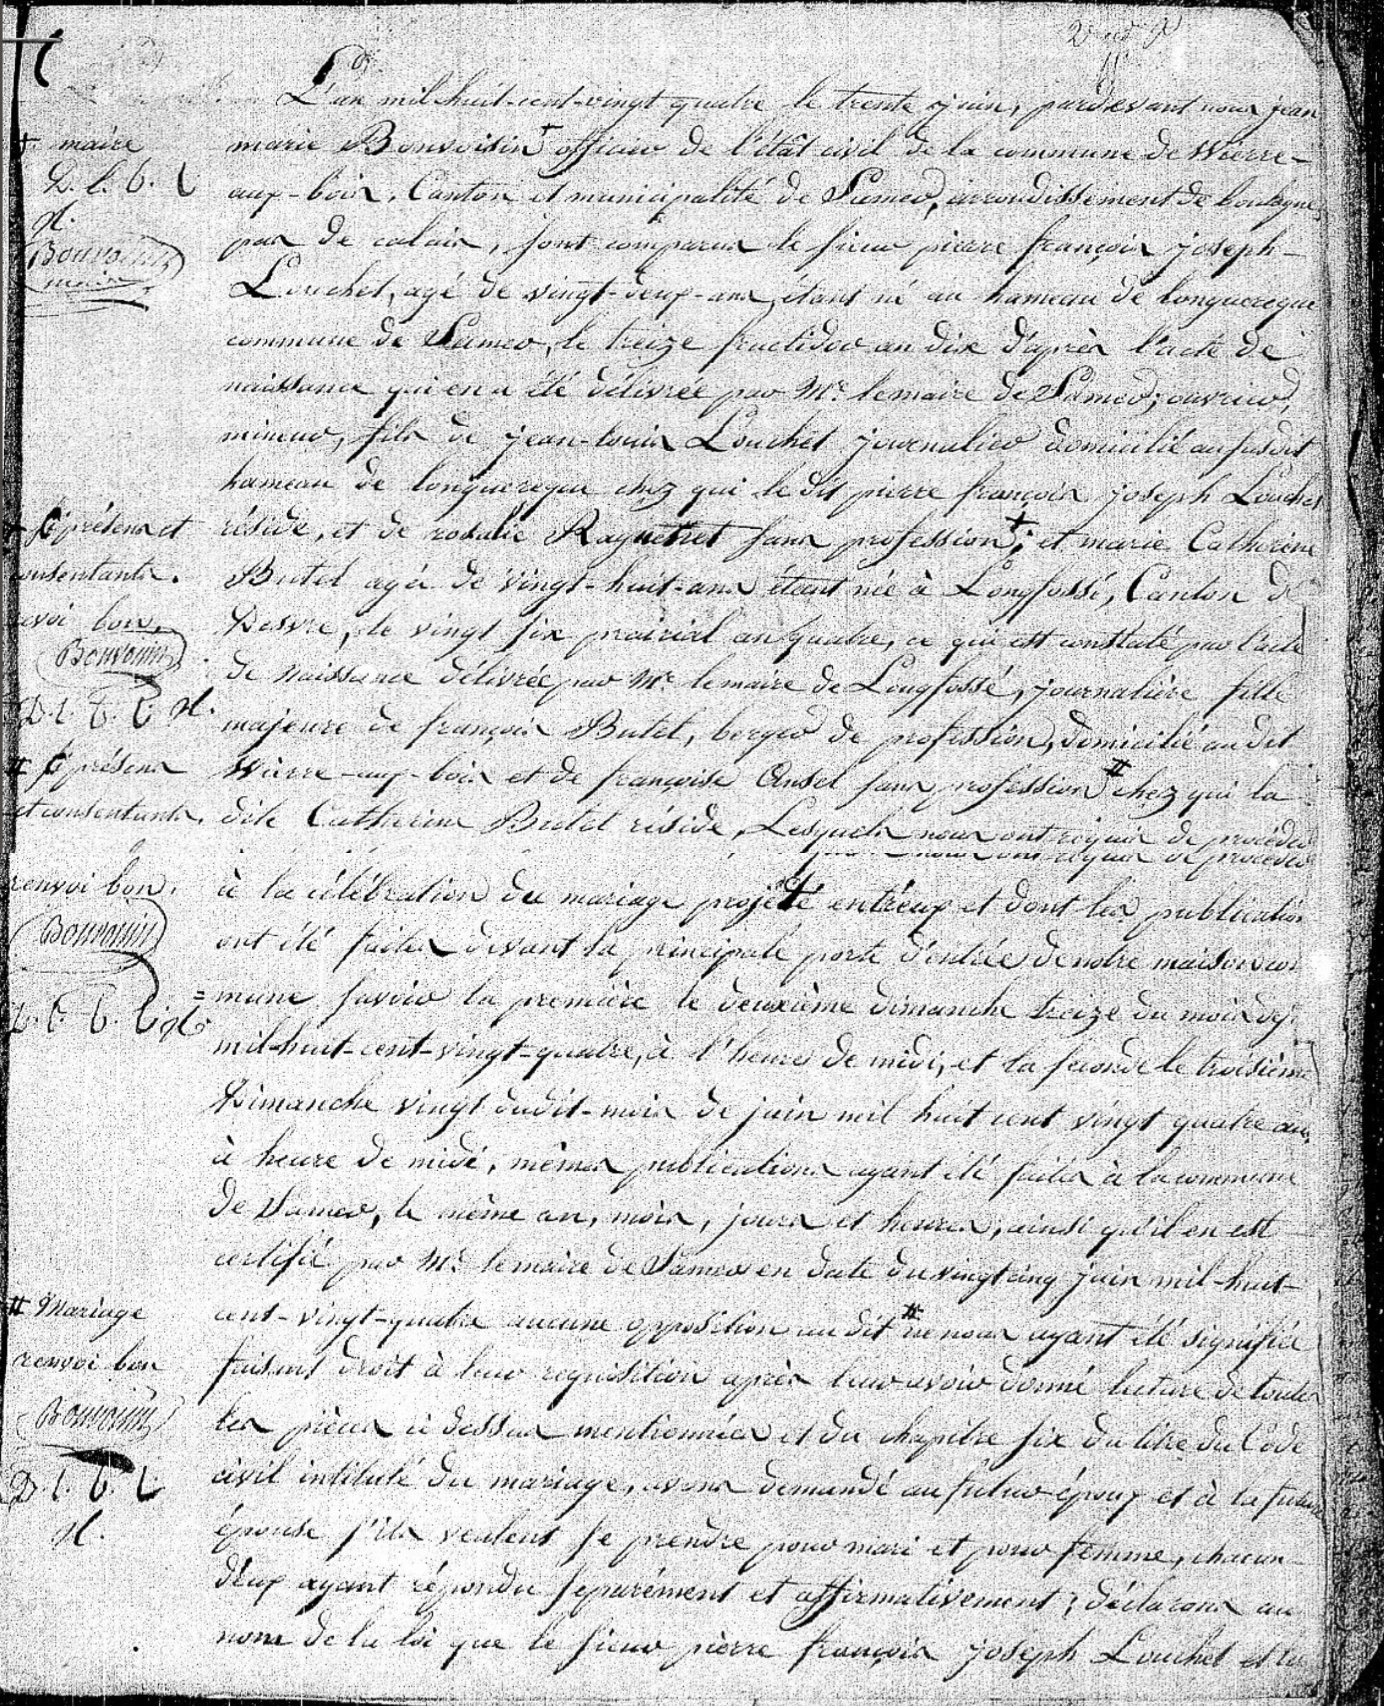 L'an mil-huit-cent-vingt quatre le trente juin, pardevant nous jean
marie Bonvoisin + officier de l'état civil de la commune de Wierre-
aux-bois, Canton et municipalité de Samer, arrondissement de boulogne
pas de calais, sont comparus le sieur pierre françois joseph-
Louchet, agé de vingt-deux-ans, étant né au hameau de longuereque
commune de Samer, le treize fructidor an dix d'après l'acte de
naissance qui en a été délivrée par Mr. lemaire de Samer; ouvrier,
mineur, fils de jean-louis Louchet journalier domicilié au susdit
hameau de longuereque chez qui le dit pierre françois joseph Louchet
réside, et de rosalie Raguetret sans profession +; et marie Catherine
Butel agée de vingt-huit-ans étant née à Longfossé, Canton de
Desvre, le vingt six prairial an quatre, ce qui est constaté par l'acte
de naissance délivrée par Mr. lemaire de Longfossé, journalière fille
majeure de françois Butel, berger de profession, domicilié au dit
Wierre-aux-bois et de françoise Ansel sans profession # chez qui la
dite Catherine Butel réside, Lesquels nous ont requis de procéder
nous ont requis de procéder
à la célébration du mariage projeté entréux et dont les publication
ont été faites devant la principale porte d'entrée de notre maison com
=mune savoir la première le deuxième dimanche treize du mois de j.
mil-huit-cent-vingt-quatre, à l'heure de midi, et la seconde le troisième
Dimanche vingt dudit-mois de juin mil huit cent vingt quatre au
à heure de midi, mêmes publications ayant été faites à la commune
de Samer, le même an, mois, jours et heures, ainsi qu'il en est
certifié par Mr. lemaire de Samer en date du vingt cinq juin mil-huit-
cent-vingt-quatre aucune opposition au dit # ne nous ayant été signifiée
faisant droit à leur requisition après leur avoir donné lecture de toutes
les pièces ci dessus mentionnées et du chapitre six du titre du Code
civil intitulé du mariage, avons demandé au futur époux et à la future
épouse s'ils veulent se prendre pour mari et pour femme, chacun
d'eux ayant répondu separément et affirmativement; déclarons au
nom de la loi que le sieur pierre françois joseph Louchet et la
+ maire
D. l. b. l
Bonvoisin
maire
+ présens et
consentants.
renvoi bon.
Bonvoisin
D. l. b. l
# présens
et consentants.
renvoi bon.
Bonvoisin
D. l. b. l
# Mariage
renvoi bon
Bonvoisin
D. l. b. l